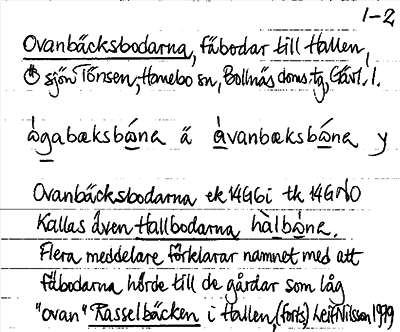 1-2
Ovanbäcksbodarna, fäbodar till Hallen,
Ö sjön Tönsen, Hanebo sn, Bollnäs doms.tg, Gävl. l.
ågabæksbωna ä àvanbæksbώna y
Ovanbäcksbodarna ek 14G6i tk 14GNO
Kallas även Hallbodarna hàlbωna.
Flera meddelare förklarar namnet med att
fäbodarna hörde till de gårdar som låg
"ovan" Rasselbäcken i Hallen, (forts) Leif Nilsson 1979